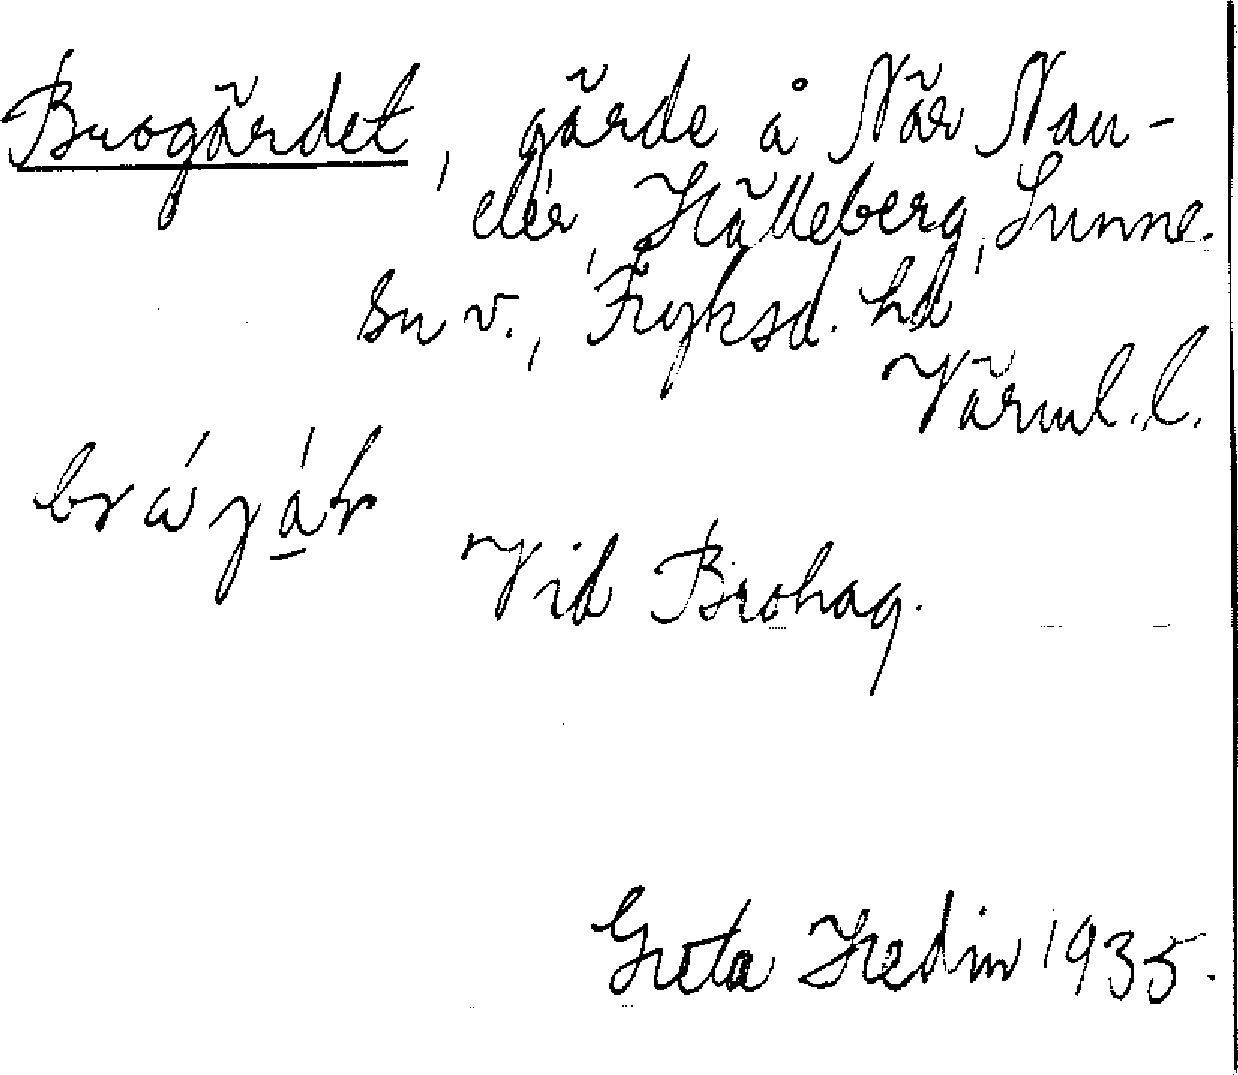 Brogärdet, gärde å När Nan-
elér, Hälleberg, Sunne
sn v., Fryksd. hd
Värml. l.
Vid Brohag.
Greta Hedin 1935.